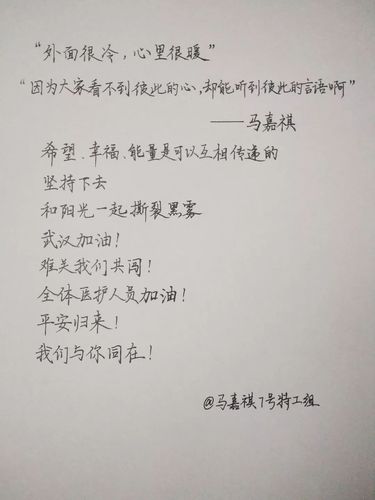 “外面很冷，心里很暖”
“因为大家看不到彼此的心，却能听到彼此的言语啊”
——马嘉祺
希望、幸福、能量是可以互相传递的
坚持下去
和阳光一起撕裂黑雾
武汉加油！
难关我们共闯！
全体医护人员加油！
平安归来！
我们与你同在！
@马嘉祺7号特工组